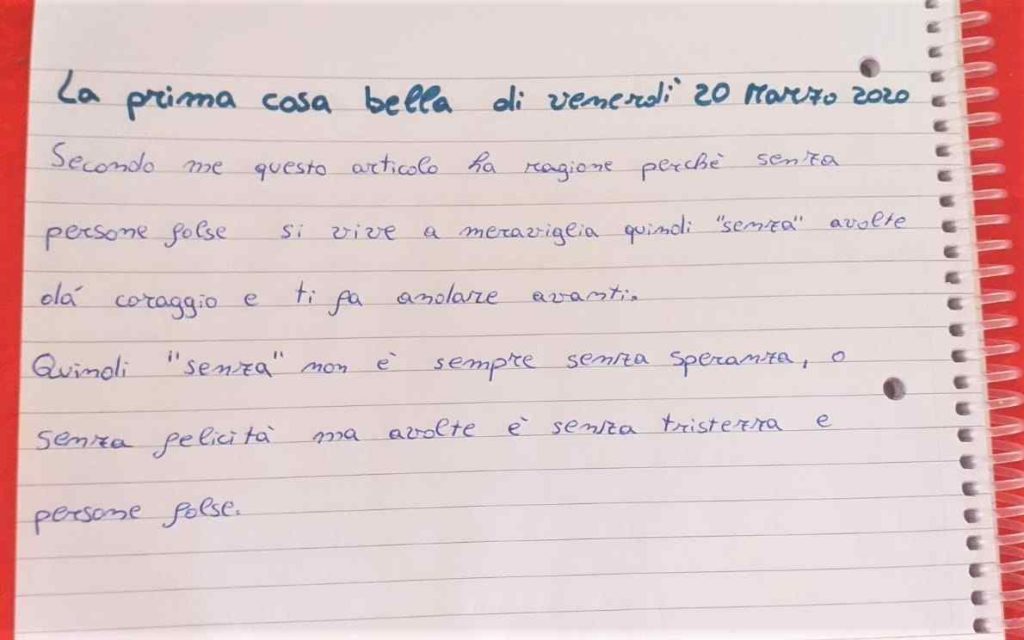 La prima cosa bella di venerdì 20 Marzo 2020
Secondo me questo articolo ha ragione perchè senza
persone false si vive a meraviglia quindi "senza" avolte
dá coraggio e ti fa andare avanti.
Quindi "senza" non è sempre senza speranza, o
senza felicità ma avolte è senza tristezza e
persone false.